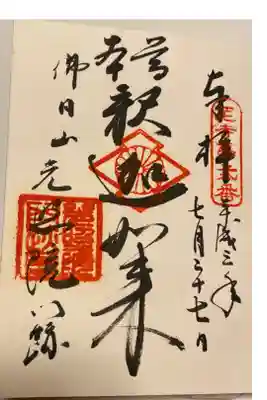 奉拝
平成三年
七月二十七日
本尊
釈迦如来
佛日山光照院門跡